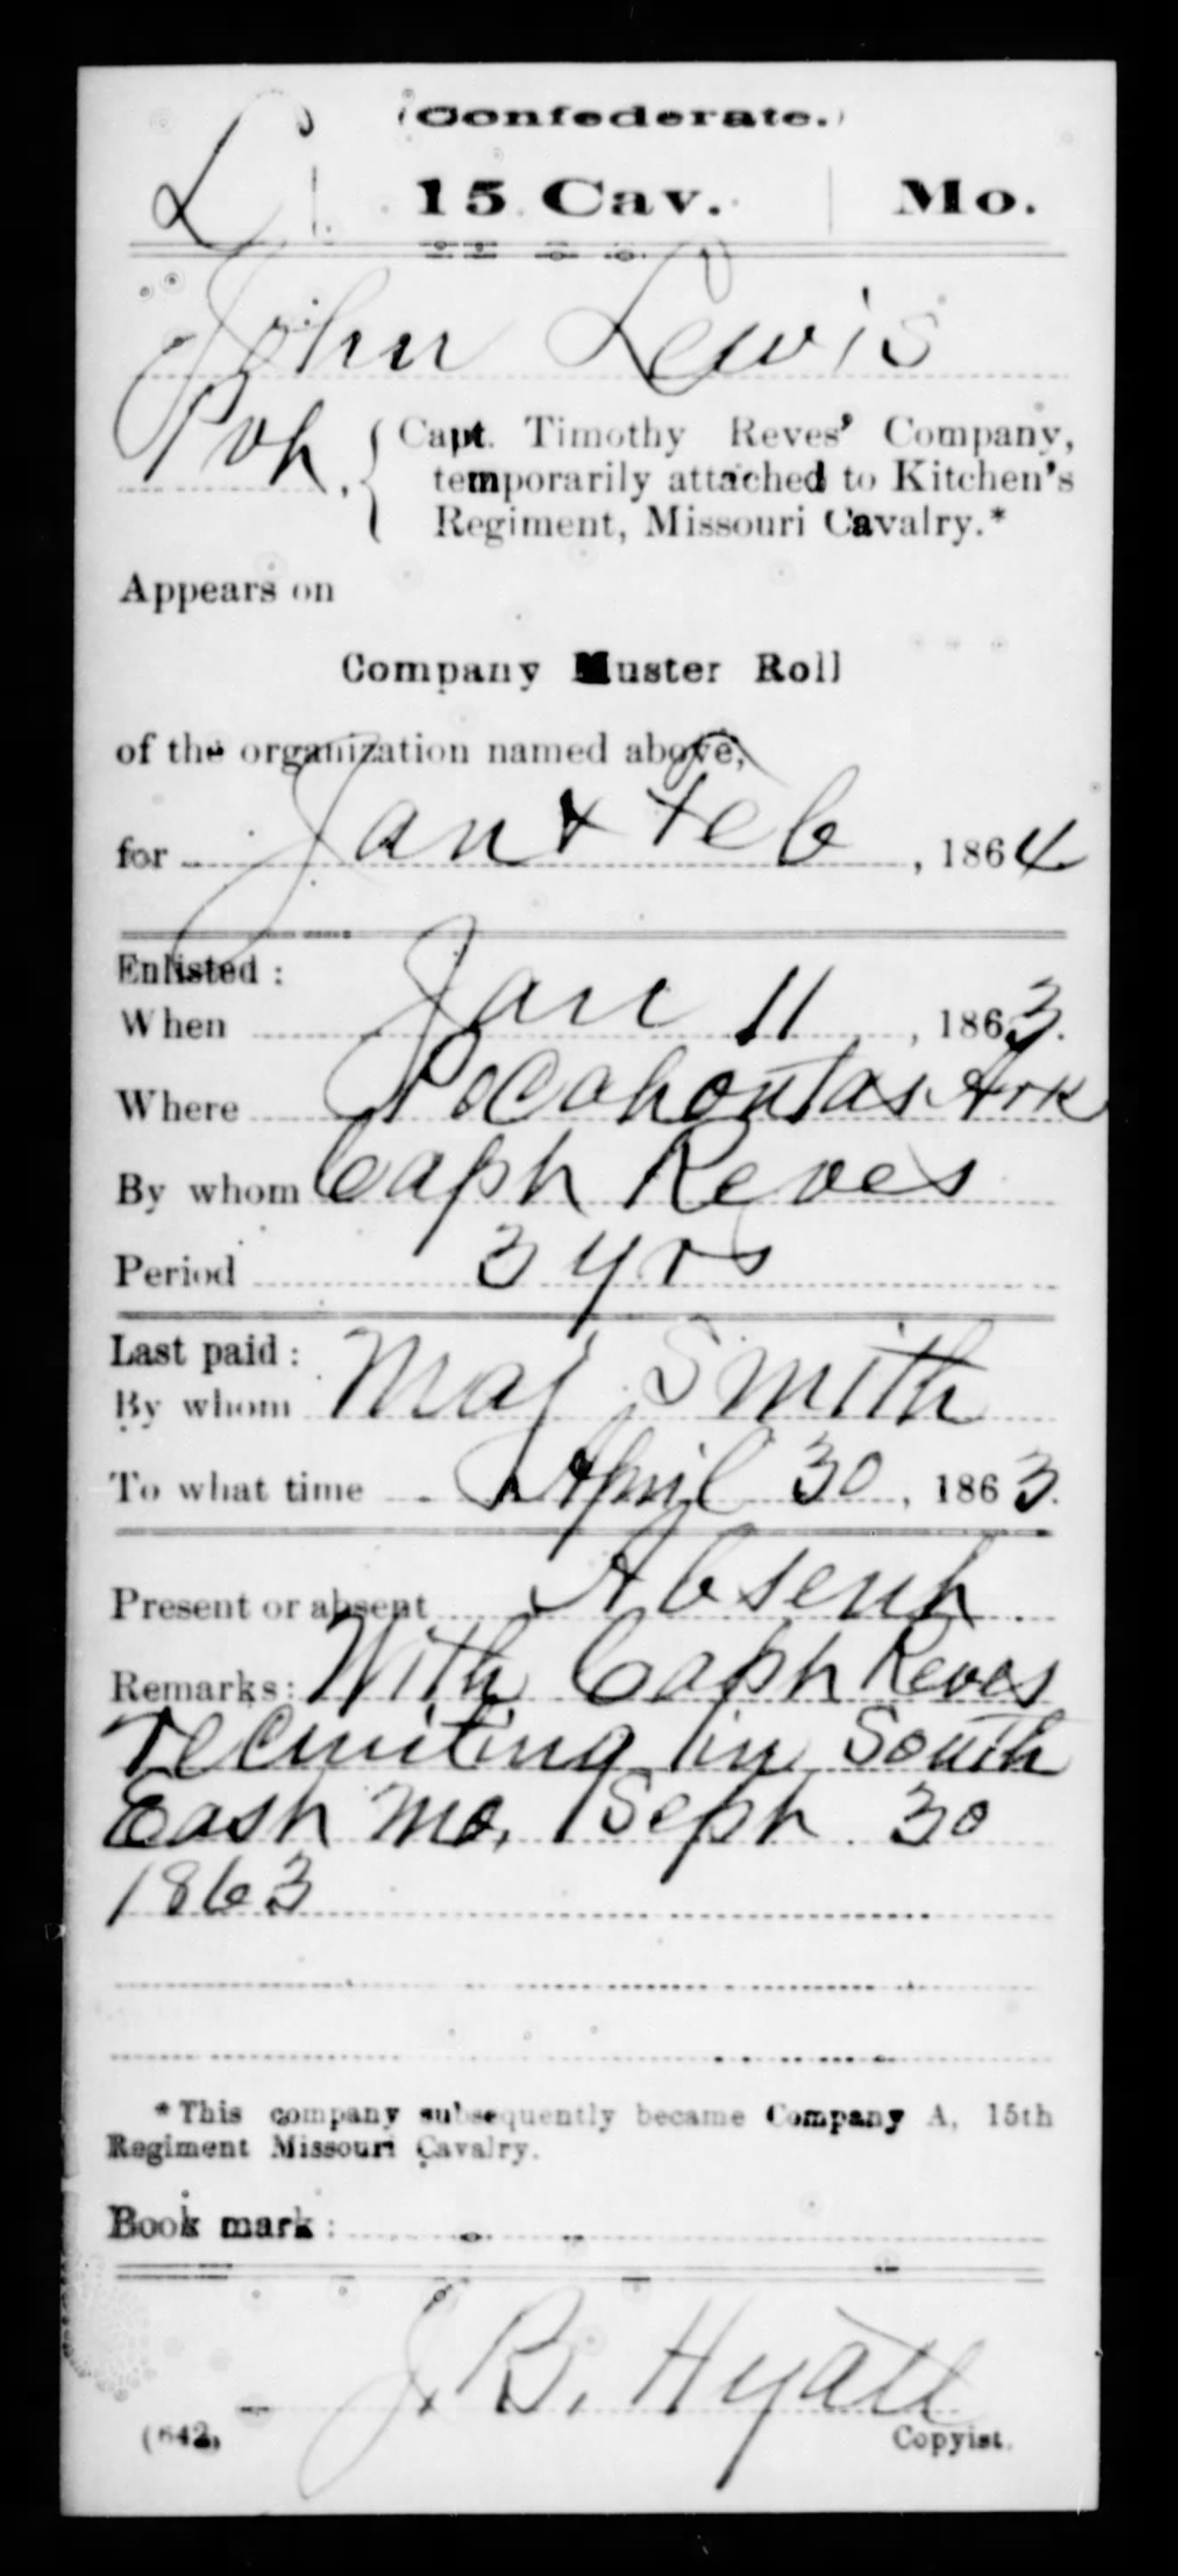 (Confederate.)
L | 15 Cav. | Mo.
John Lewis
Pvt, { Capt. Timothy Reves' Company,
temporarily attached to Kitchen's
Regiment, Missouri Cavalry.*
Appears on
Company Muster Roll
of the organization named above,
for Jan & Feb, 1864
Enlisted:
When Jan 11, 1863.
Where Pocahontas Ark
By whom Capt Reves
Period 3 yrs
Last paid:
By whom Maj Smith
To what time April 30, 1863.
Present or absent Absent
Remarks: With Capt Reves
recruiting in South
East Mo. Sept 30
1863
*This company subsequently became Company A, 15th
Regiment Missouri Cavalry.
Book mark:
J. B. Hyatt
(642) Copyist.